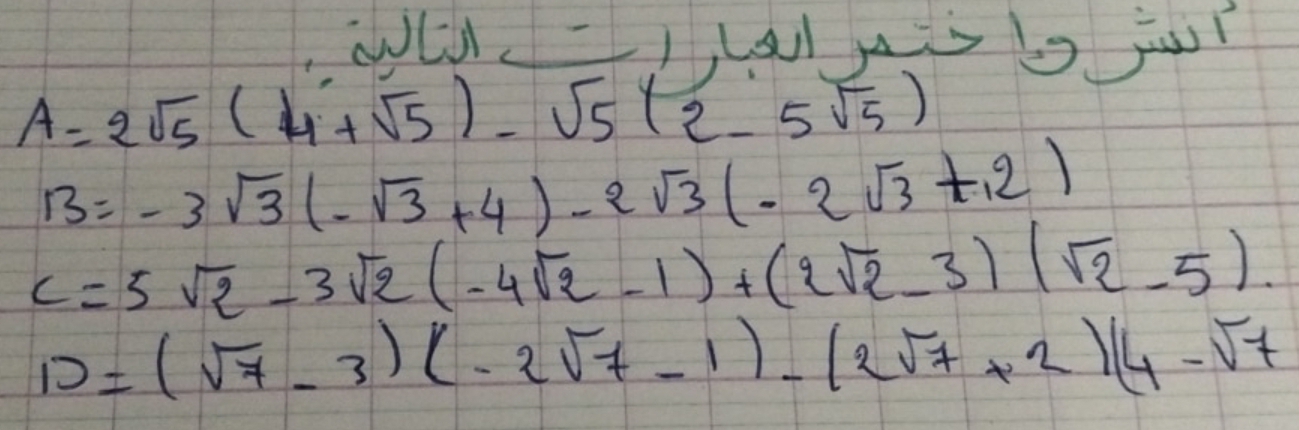 أنشر واختصر العبارات التالية:
A = 2√5 (4 + √5) - √5 (2 - 5√5)
B = - 3√3 (- √3 + 4) - 2√3 (- 2√3 + 2)
C = 5√2 - 3√2 (- 4√2 - 1) + (2√2 - 3) (√2 - 5).
D = (√7 - 3) (- 2√7 - 1) - (2√7 + 2)(4 - √7